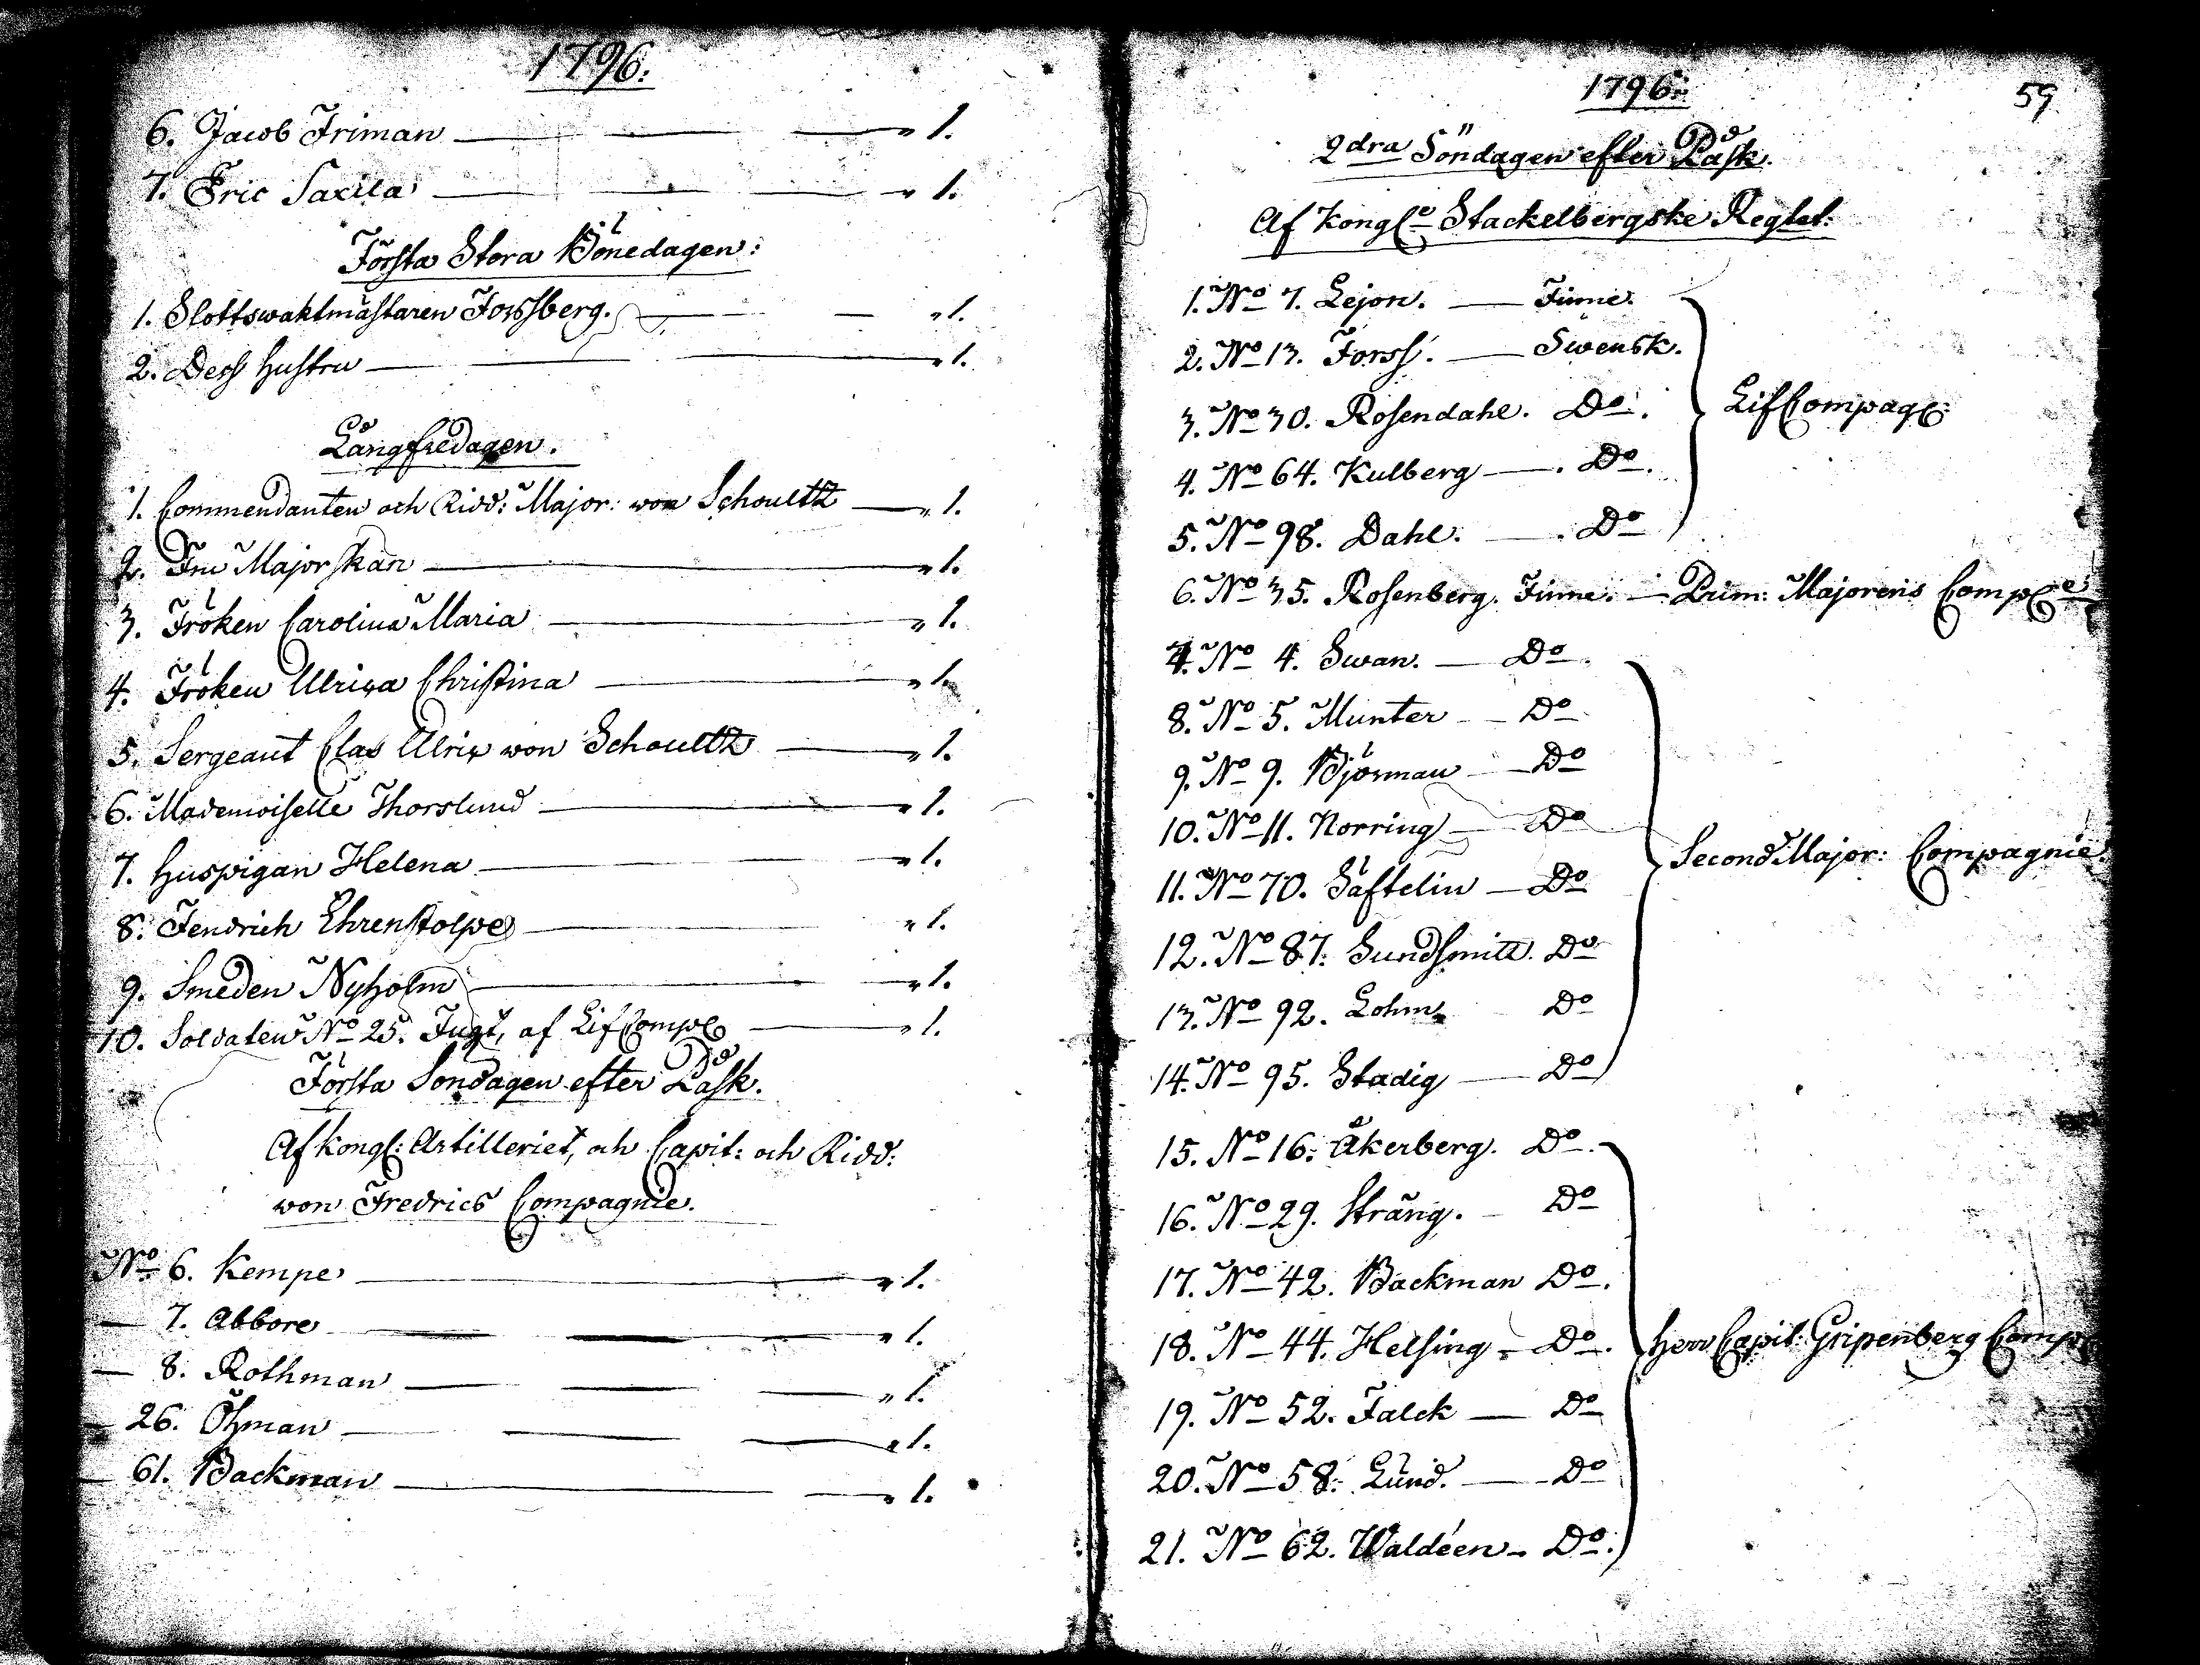 1796.
6. Jacob Friman — — „ 1.
7. Eric Saxila — — — „ 1.
Första Stora Bönedagen:
1. Slottswaktmästaren Forssberg. — — „ 1.
2. Dess hustru — — — „ 1.
Långfredagen.
1. Commendanten och Ridd: Major: von Schoultz — „ 1.
2. Fru Majorskan — „ 1.
3. Fröken Carolina Maria — „ 1.
4. Fröken Ulrica Christina — „ 1.
5. Sergeant Clas Ulric von Schoultz — „ 1.
6. Mademoiselle Thorslund — „ 1.
7. huspigan Helena — „ 1.
8. Fendrich Ehrenstolpe — „ 1.
9. Smeden Nyholm — „ 1.
10. Soldaten No 25. Fugt, af Lif Comp — „ 1.
Första Söndagen efter Påsk.
Af kongl: Artilleriet, och Capit: och Ridd:
von Fredrics Compagnie.
No 6. Kempe — „ 1.
— 7. Abbore — — — „ 1.
— 8. Rothman — — — „ 1.
— 26. Öhman — — — „ 1.
— 61. Backman — — „ 1.
1796. 59
2dra Söndagen efter Påsk.
Af Kongle Stackelbergske Regtet.
1. No 7. Lejon. — Finne.
2. No 13. Forss. — Swensk.
3. No 30. Rosendahl. Do.
Lif Compag:
4. No 64. Kulberg — . Do.
5. No 98. Dahl. — . Do
6. No 35. Rosenberg. Finne. — Prim: Majorens Compe
7. No 4. Swan. — Do.
8. No 5. Munter — Do
9. No 9. Björnman — Do
10. No 11. Norring — Do
Second Major: Compagnie.
11. No 70. Säftelin — Do
12. No 87. Sundsmitt. Do
13. No 92. Lohm Do
14. No 95. Stadig — Do
15. No 16. Åkerberg. Do.
16. No 29. Sträng. — Do
17. No 42. Backman Do.
18. No 44. Helsing — Do. herr Capit: Gripenberg Comp
19. No 52. Falck — Do
20. No 58. Lund. — Do
21. No 62. Waldéen — Do.